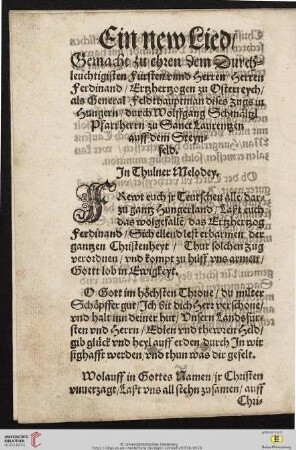 Ein new Lied/
Gemacht zu ehren dem Durch-
leuchtigisten Fürsten vnd Herren/ Herren
Ferdinand/ Ertzhertzogen zu Osterreych/
als General Feldthauptman dises Zugs in
Hungern/ durch Wolffgang Schmältzl
Pfarrherrn zu Sanct Laurentzen
auff dem Steyn-
feld.
In Thulner Melodey.
FRewt euch jr Teutschen alle dar/
zu gantz Hungerland/ Last euch
das wolgefalle/ das Ertzhertzog
Ferdinand/ Sich ellend lest erbarmen der
gantzen Christenheyt/ Thut solchen Zug
verordnen/ vnd kompt zu hilff vns armen/
Gott lob in Ewigkeyt.
O Gott im höchsten Throne/ du milter
Schöpffer gut/ Ich bit dich Herr verschone/
vnd halt inn deiner hut/ Vnsern Landsfür-
sten vnd Herrn/ Edlen vnd thewren Held/
gib glück vnd heyl auff erden/ durch In wir
sighafft werden/ vnd thun was dir gefelt.
Wolauff in Gottes Namen/ jr Christen
vnuerzagt/ Last vns all ziehn zusamen/ auff
Chri-